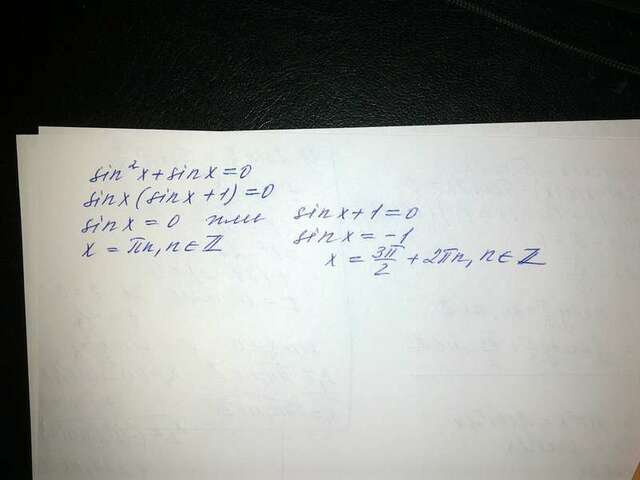 sin²x + sin x = 0
sin x (sin x + 1) = 0
sin x = 0 или sin x + 1 = 0
x = πn, n ∈ ℤ sin x = -1
x = 3π/2 + 2πn, n ∈ ℤ